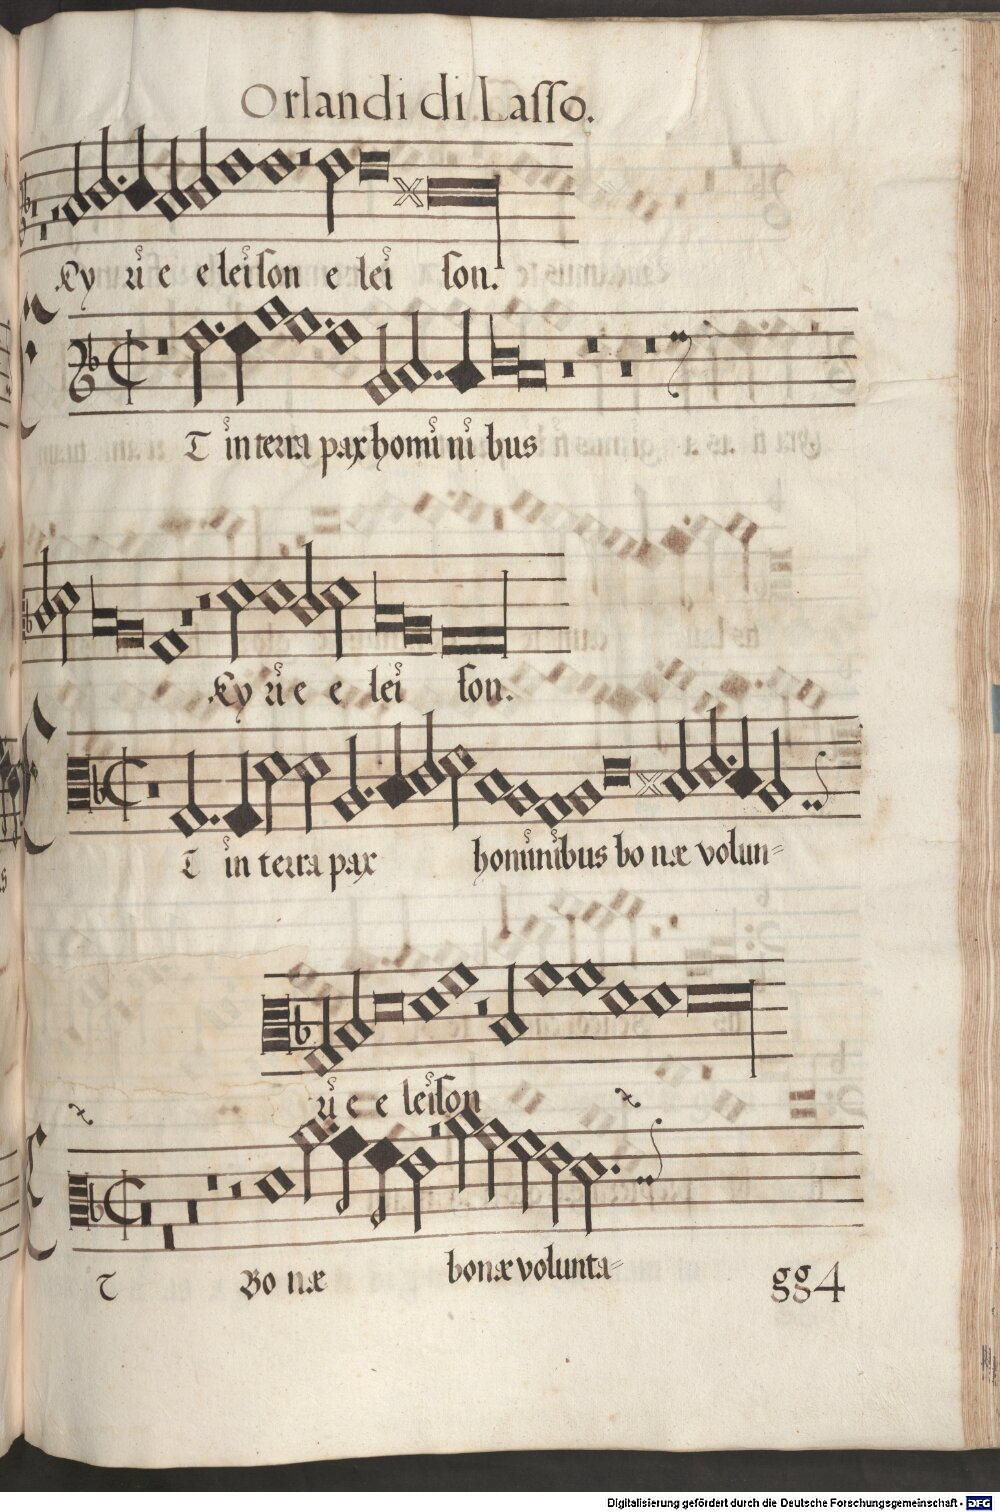 Orlandi di Lasso.
Ky ri e e leison e lei son.
T in terra pax homi ni bus
Ky ri e e lei son.
T in terra pax hominibus bo næ volun=
ri e e leison
T Bo næ bonæ volunta=
gg4
Digitalisierung gefördert durch die Deutsche Forschungsgemeinschaft - DFG